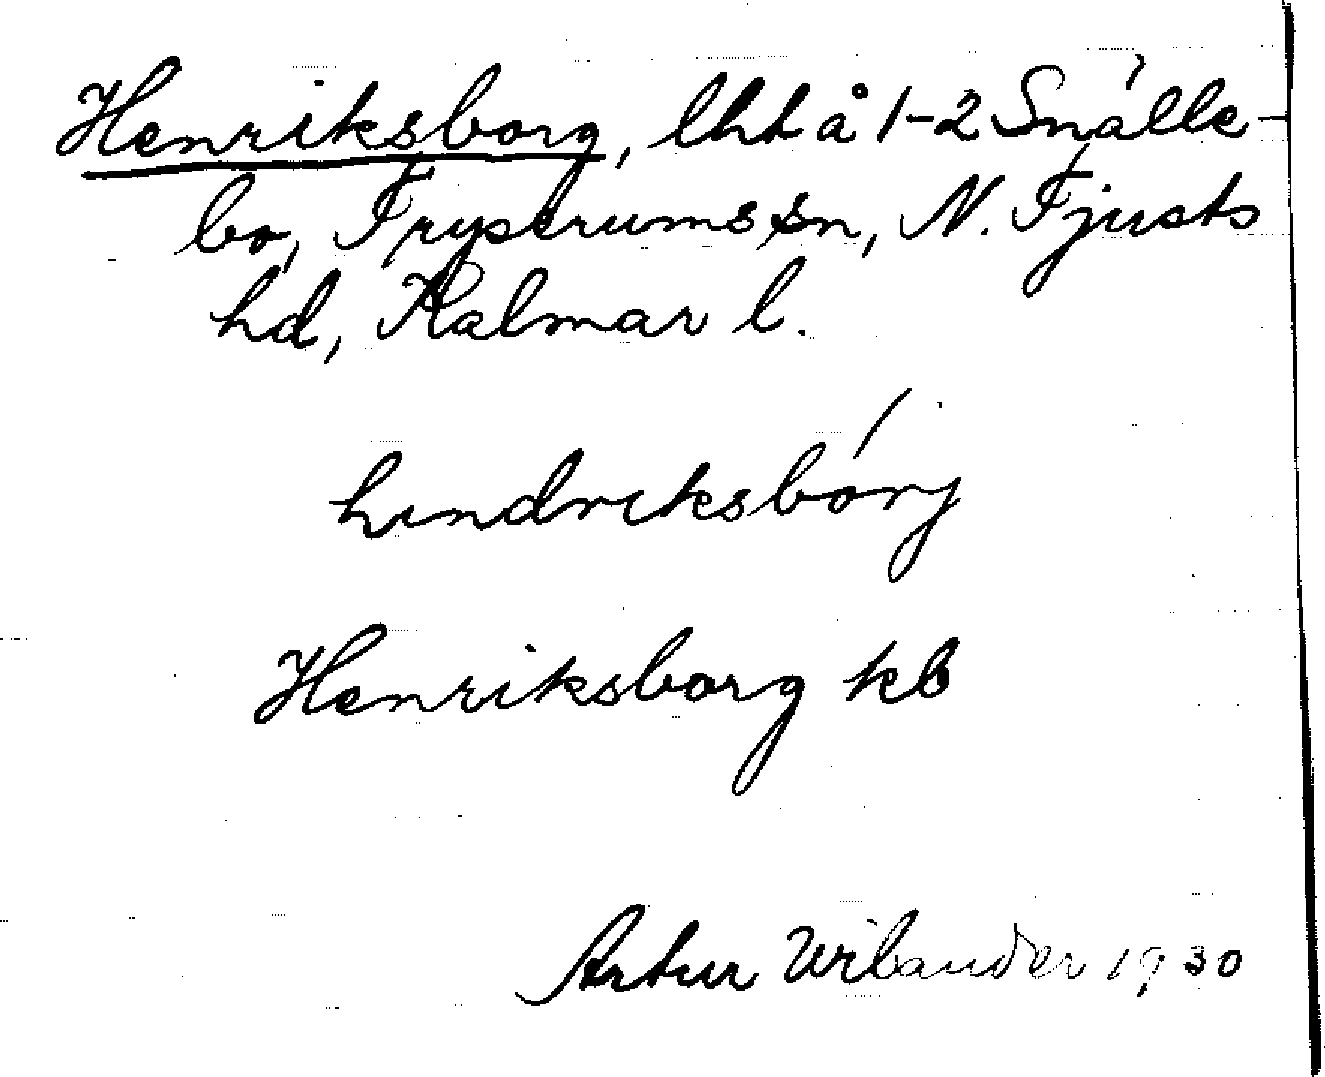 Henriksborg, lht å 1-2 Snälle-
bo, Tryserums sn, N. Tjusts
hd, Kalmar l.
hındrıksbórj
Henriksborg kb
Artur Wilander 1930